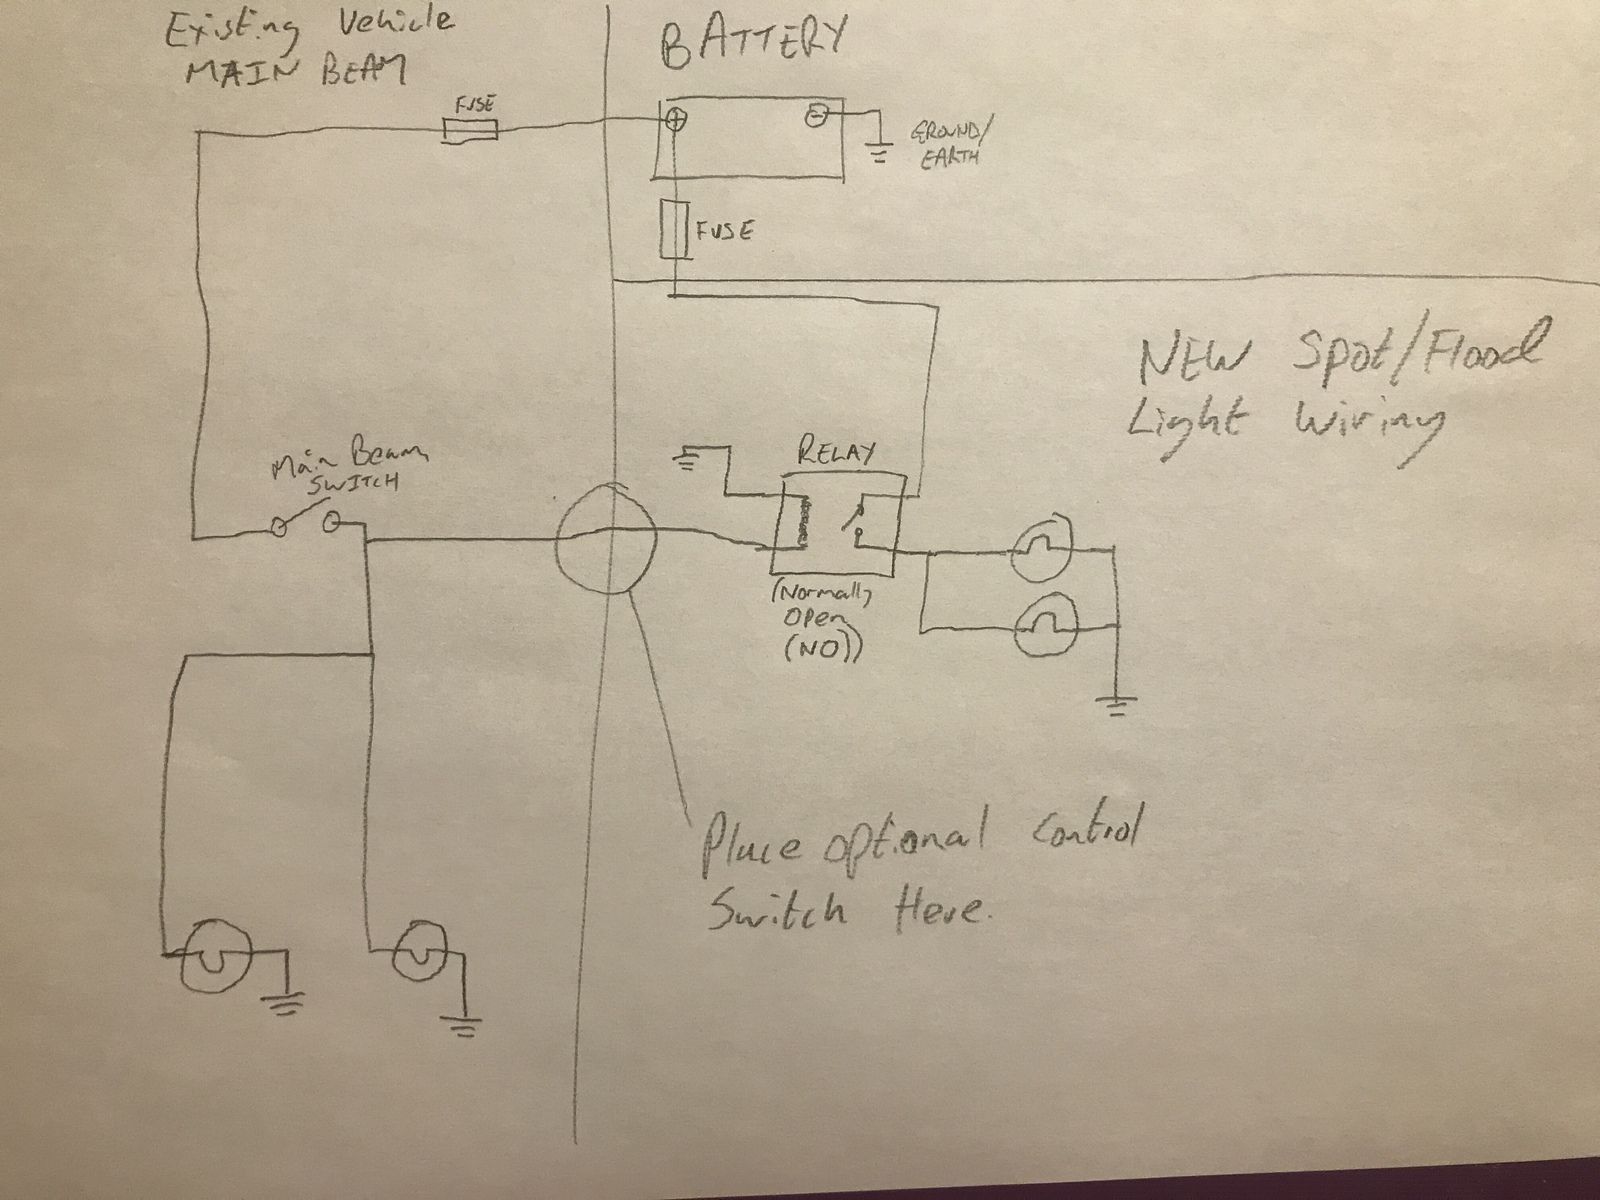 Existing Vehicle
MAIN BEAM
BATTERY
FUSE
+
-
GROUND/
EARTH
FUSE
NEW Spot/Flood
Light Wiring
Main Beam
SWITCH
RELAY
(Normally
Open
(NO))
Place optional Control
Switch Here.